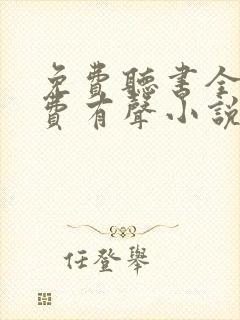 免費聽書全
費有聲小說
任登舉